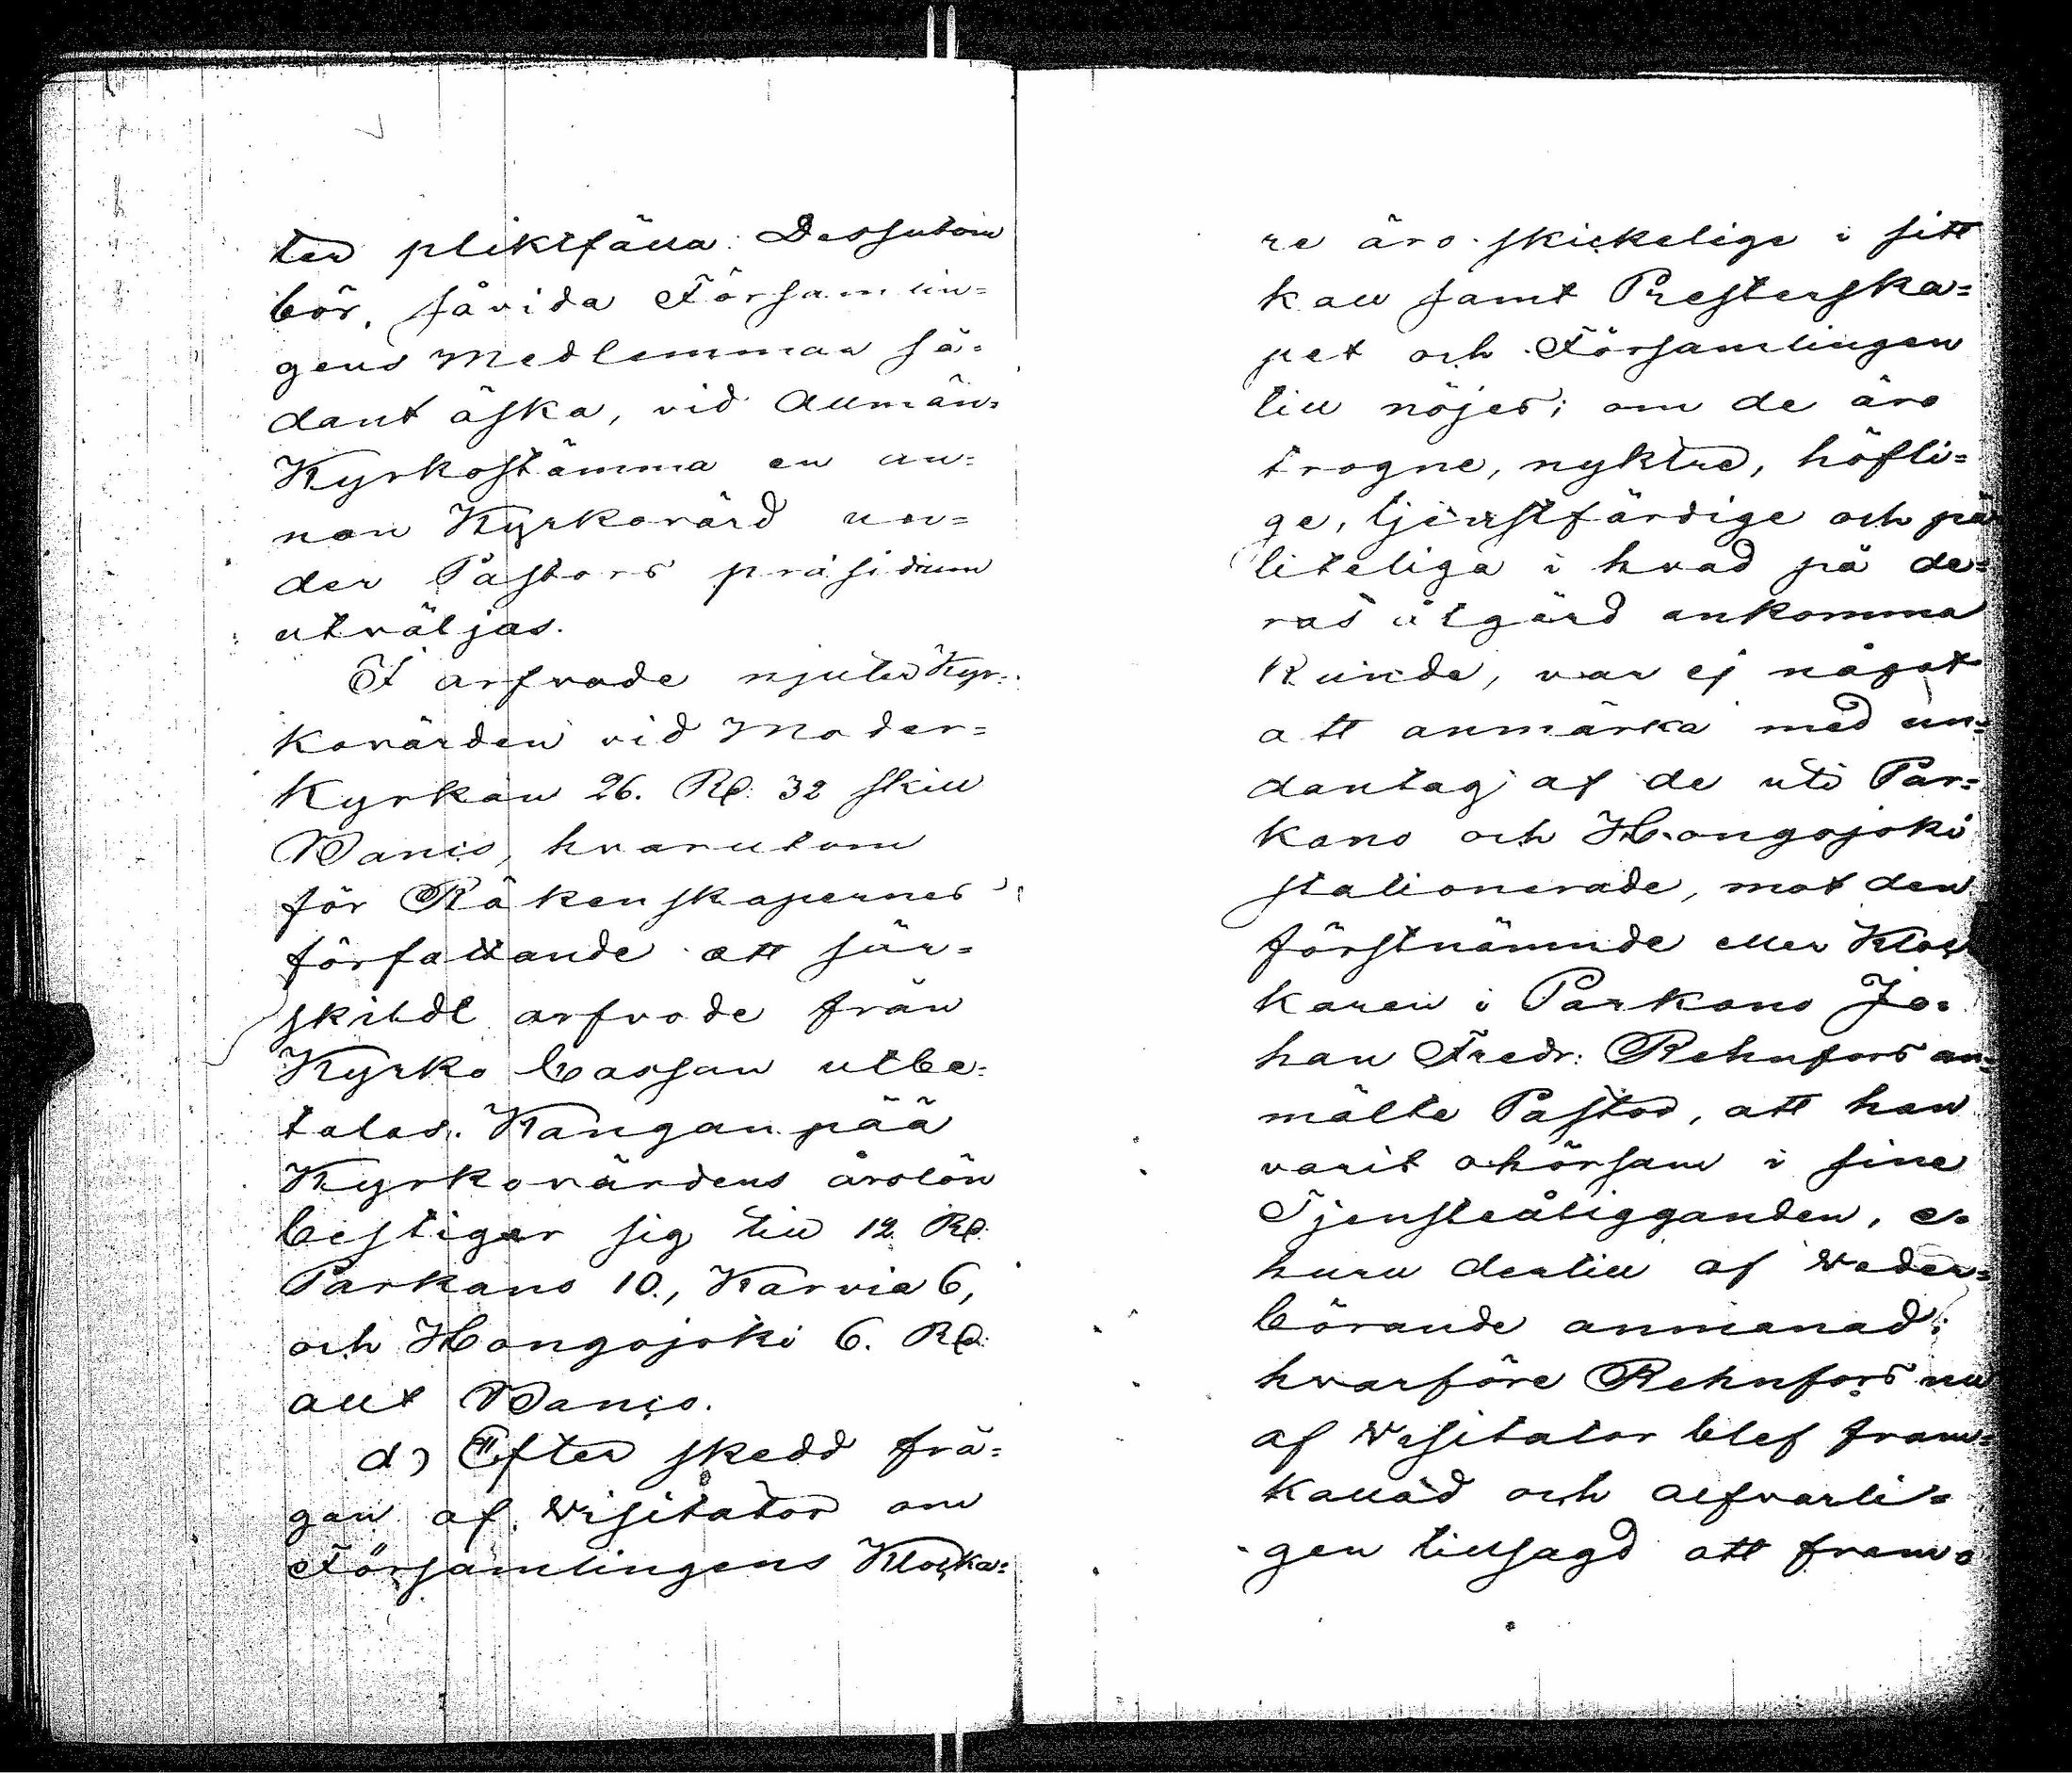 ter pliktfälla. Dessutom
bör, såvida Församlin=
gens Medlemmar så=
dant äska, vid Allmän=
Kyrkostämma en an=
nan Kyrkovärd un=
der Pastors präsidium
utväljas.
I arfvode njuter Kyr=
kovärden vid Moder=
Kyrkan 26. Rd: 32 skill
Banco, hvarutom
för Räkenskapernes
författande ett sär=
skildt arfvode från
Kyrko Cassan utbe=
talas. Kanganpää
Kyrkovärdens årslön
bestiger sig till 12 Rd:
Parkano 10., Karvia 6,
och Hongojoki 6. Rd:
allt Banco.
d) Efter skedd frå=
gan af Visitator om
Församlingens Klocka=
re äro skickelige i sitt
kall samt Presterska=
pet och Församlingen
till nöjes; om de äro
trogne, nyktre, höfli=
ge, tjenstfärdige och på
liteliga i hvad på de=
ras åtgärd ankomma
kunde, var ej något
att anmärka med un=
dantag af de uti Par=
kano och Hongojoki
stationerade, mot den
förstnämnde eller Kloc
karen i Parkano Jo=
han Fredr: Rehnfors an=
mälte Pastor, att han
varit ohörsam i sine
Tjensteåligganden, e=
huru dertill af Veder=
börande anmanad;
hvarföre Rehnfors nu
af Visitator blef fram=
kallad och alfvarli=
gen tillsagd att fram=